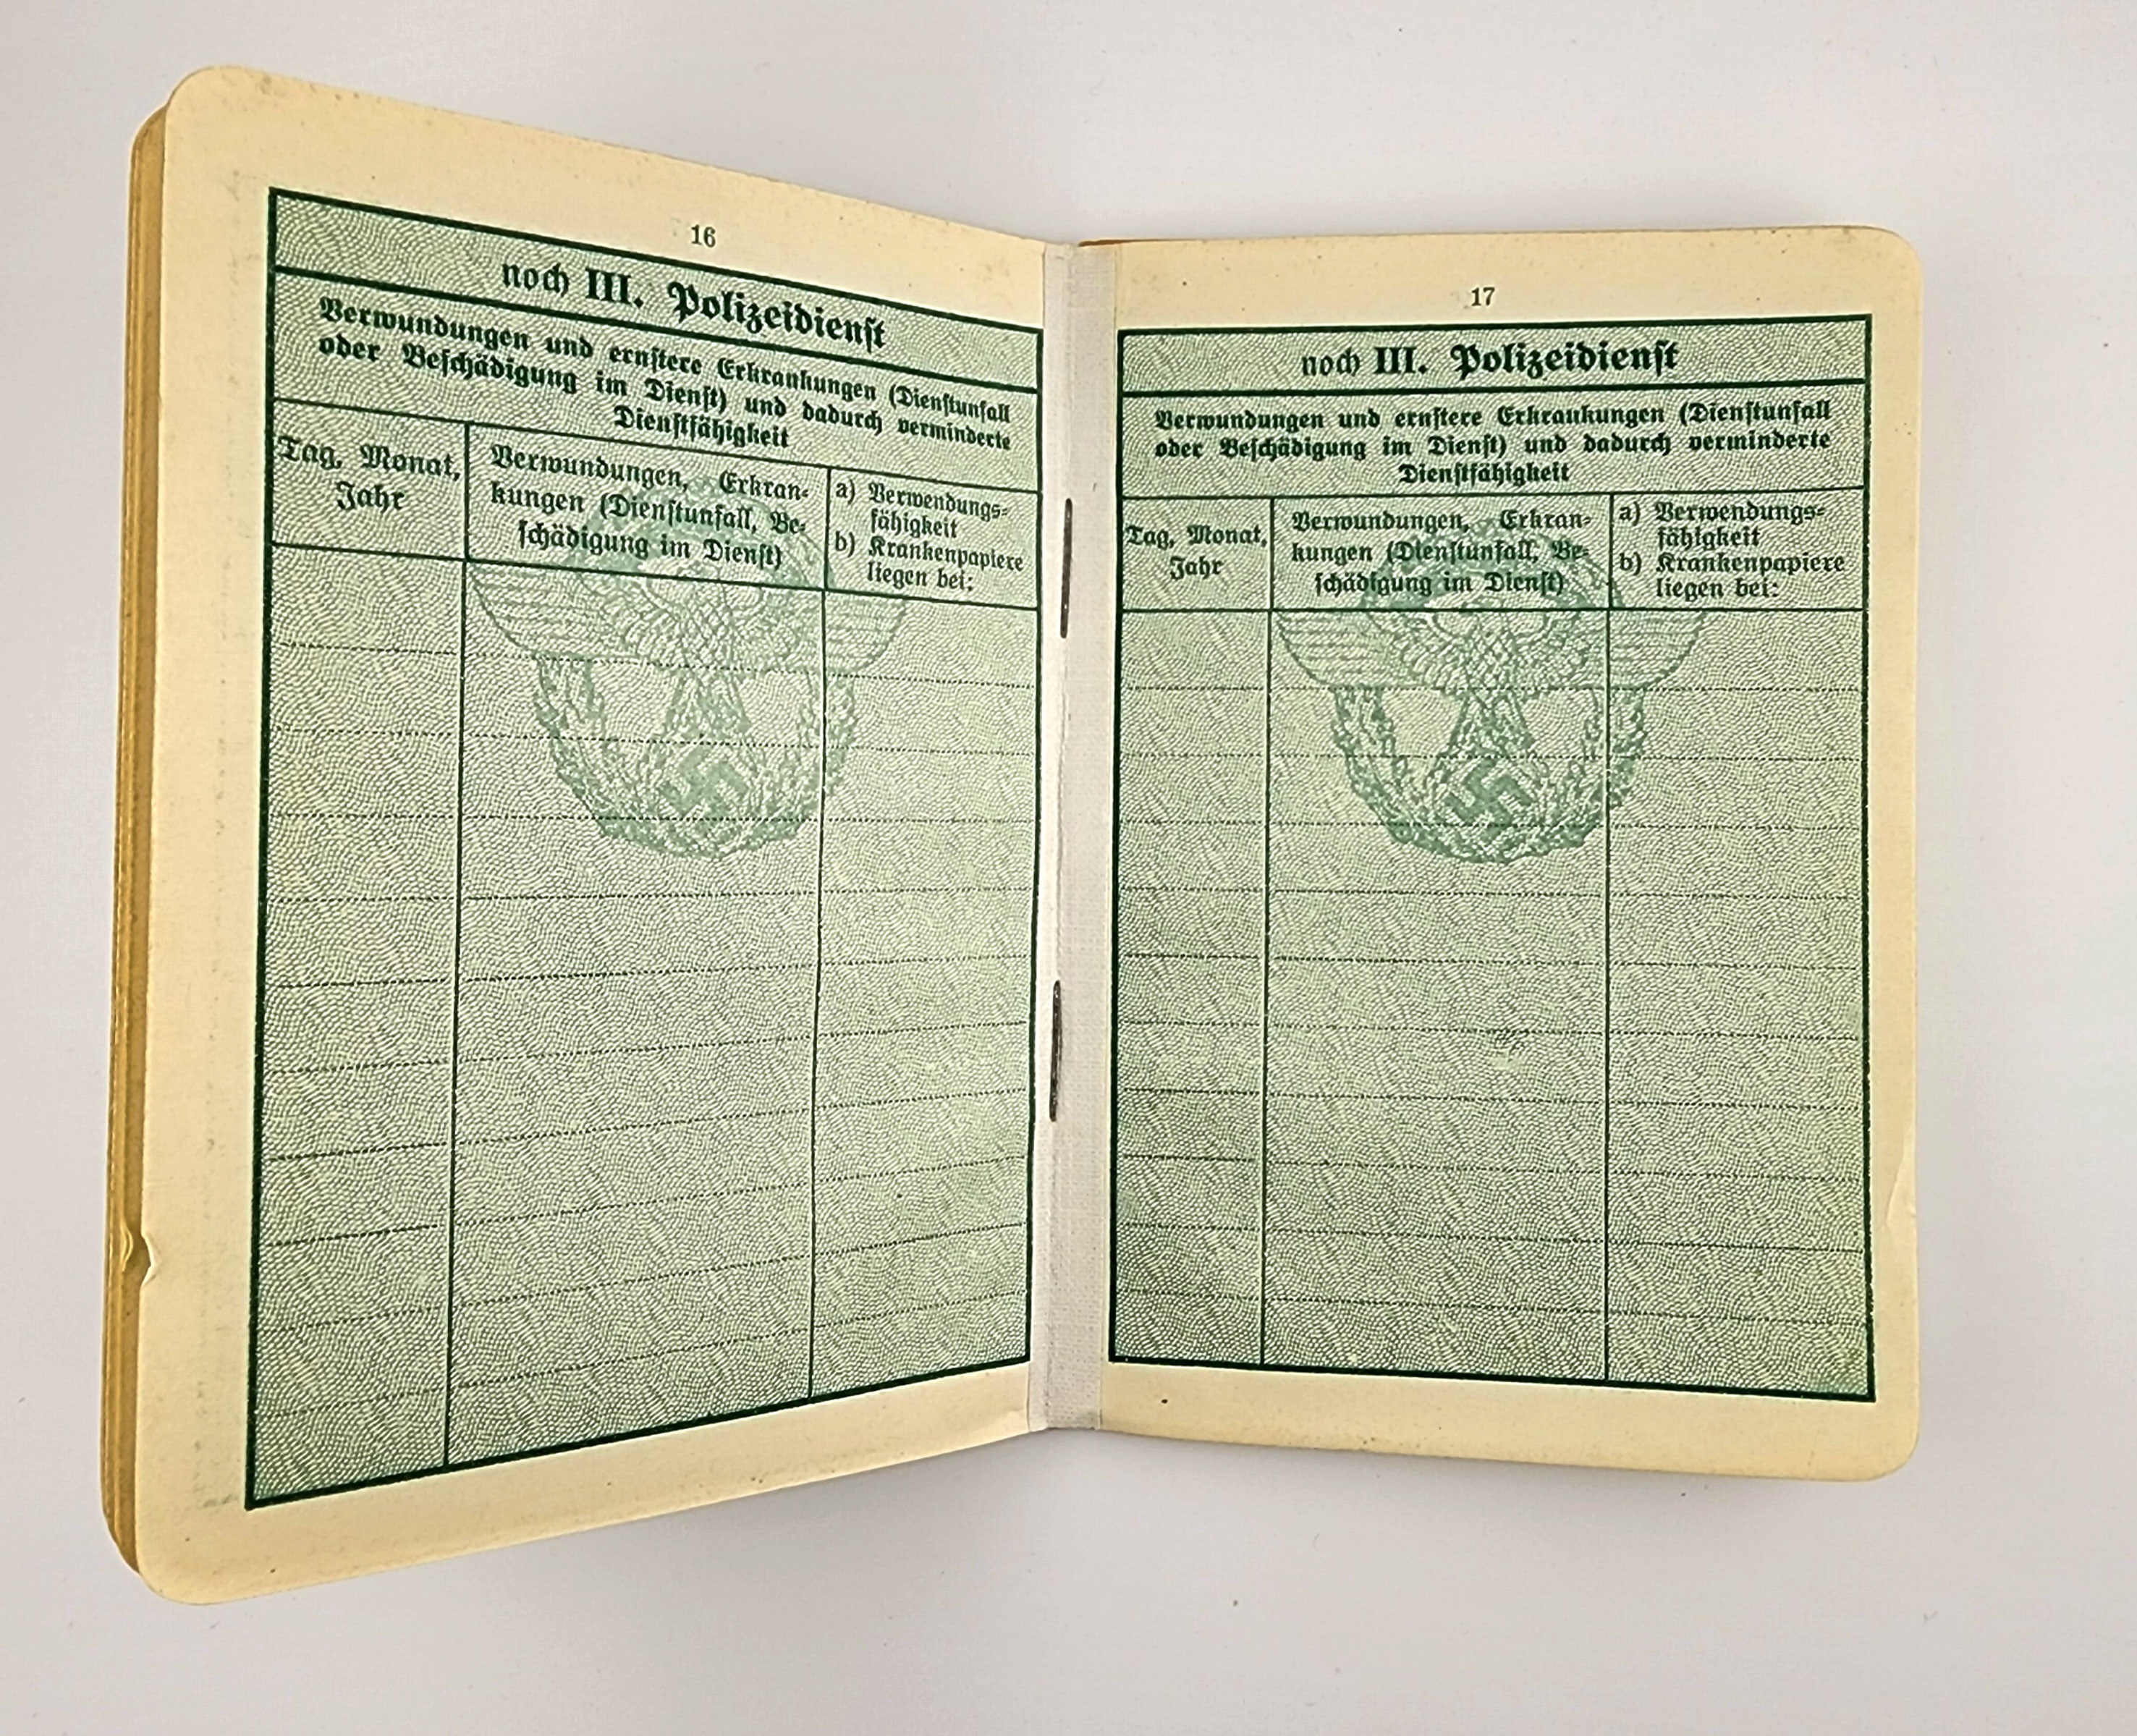 16
noch III. Polizeidienst
Verwundungen und ernstere Erkrankungen (Dienstunfall
oder Beschädigung im Dienst) und dadurch verminderte
Dienstfähigkeit
Tag, Monat,
Jahr
Verwundungen, Erkran-
kungen (Dienstunfall, Be-
schädigung im Dienst)
a) Verwendungs-
fähigkeit
b) Krankenpapiere
liegen bei:
17
noch III. Polizeidienst
Verwundungen und ernstere Erkrankungen (Dienstunfall
oder Beschädigung im Dienst) und dadurch verminderte
Dienstfähigkeit
Tag, Monat,
Jahr
Verwundungen, Erkran-
kungen (Dienstunfall, Be-
schädigung im Dienst)
a) Verwendungs-
fähigkeit
b) Krankenpapiere
liegen bei: